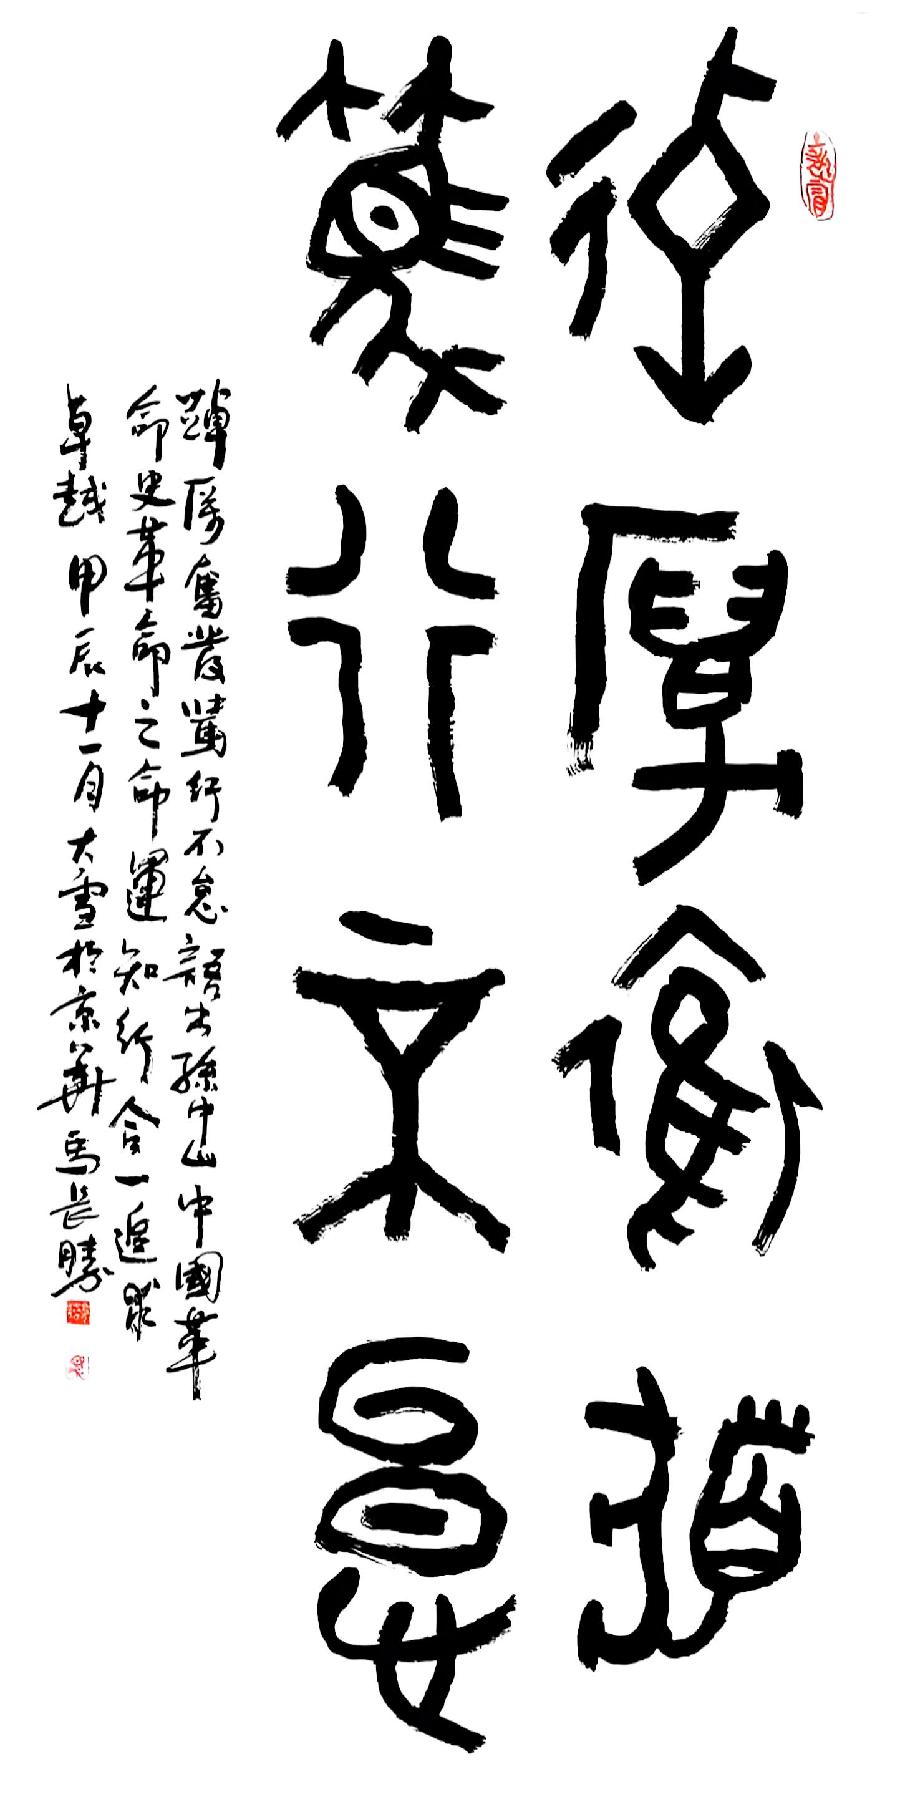 踔厲奮發
篤行不怠
踔厲奮發篤行不怠語出孫中山中國革
命史革命之命運知行合一追求
卓越甲辰十一月大雪於京華馬長勝